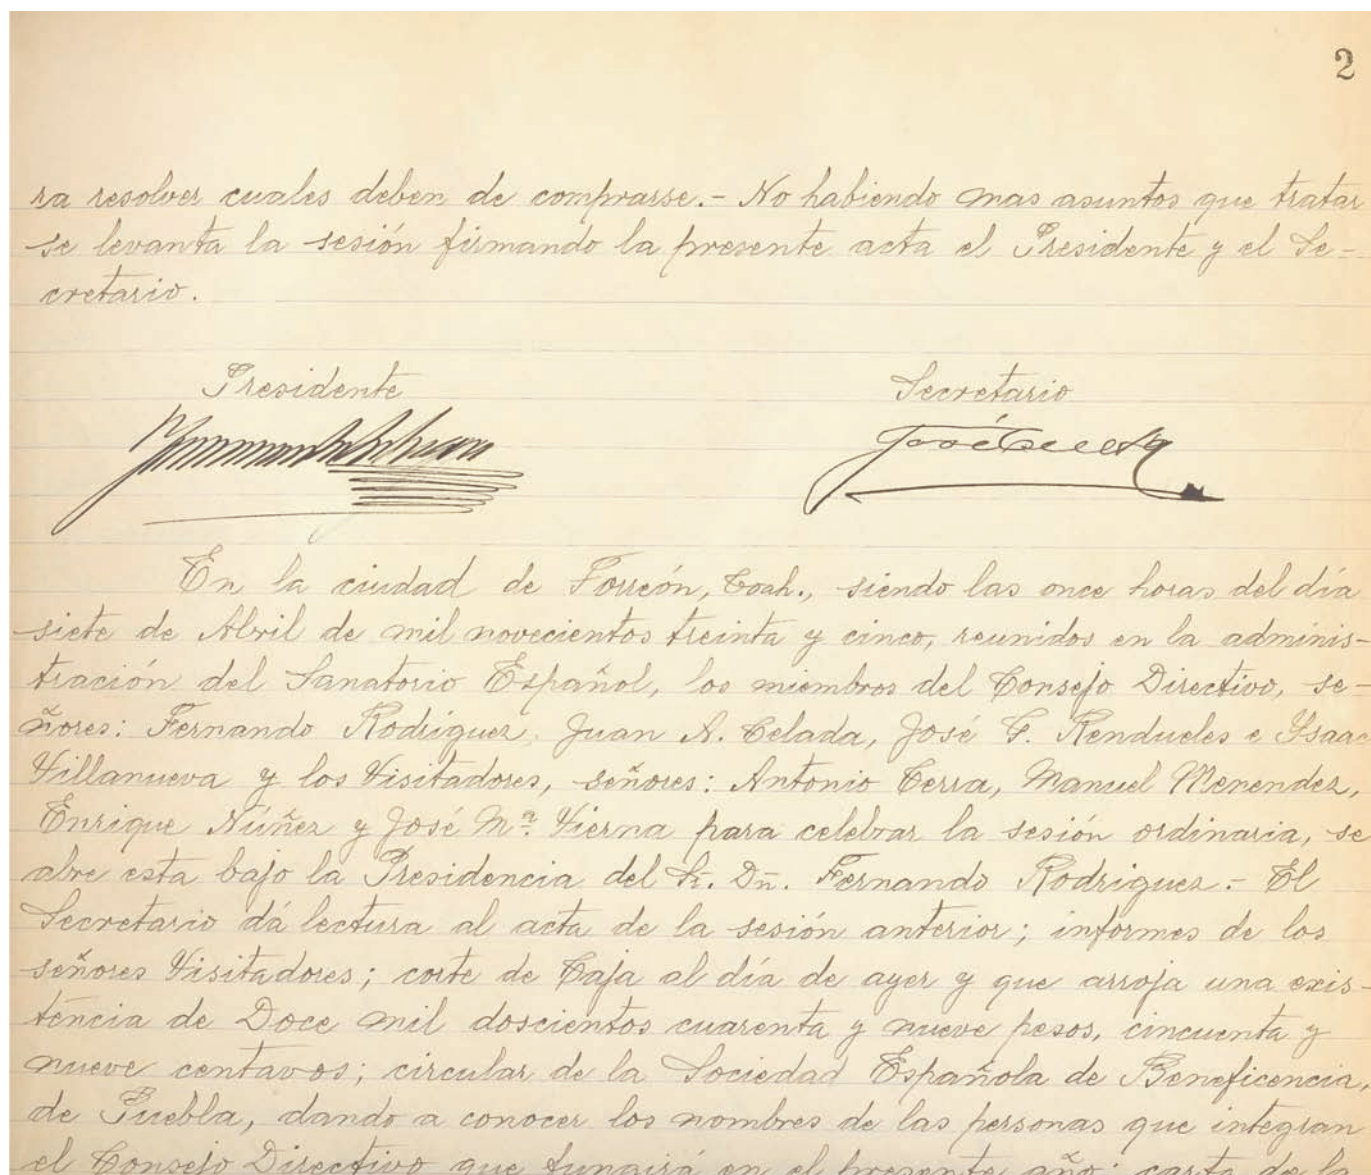 2
ra resolver cuales deben de comprarse.- No habiendo mas asuntos que tratar
se levanta la sesión firmando la presente acta el Presidente y el Se-
cretario.
Presidente Secretario
José Cueto
En la ciudad de Torreón, Coah., siendo las once horas del día
siete de Abril de mil novecientos treinta y cinco, reunidos en la adminis-
tración del Sanatorio Español, los miembros del Consejo Directivo, se-
ñores: Fernando Rodriguez, Juan A. Celada, José G. Rendueles e Ysaac
Villanueva y los Visitadores, señores: Antonio Cerra, Manuel Menendez,
Enrique Núñez y José Mª. Vierna para celebrar la sesión ordinaria, se
abre esta bajo la Presidencia del Sr. Dn. Fernando Rodriguez.- El
Secretario dá lectura al acta de la sesión anterior; informes de los
señores Visitadores; corte de Caja al día de ayer y que arroja una exis-
tencia de Doce mil doscientos cuarenta y nueve pesos, cincuenta y
nueve centavos; circular de la Sociedad Española de Beneficencia,
de Puebla, dando a conocer los nombres de las personas que integran
el Consejo Directivo que fungirá en el presente año; carta de la